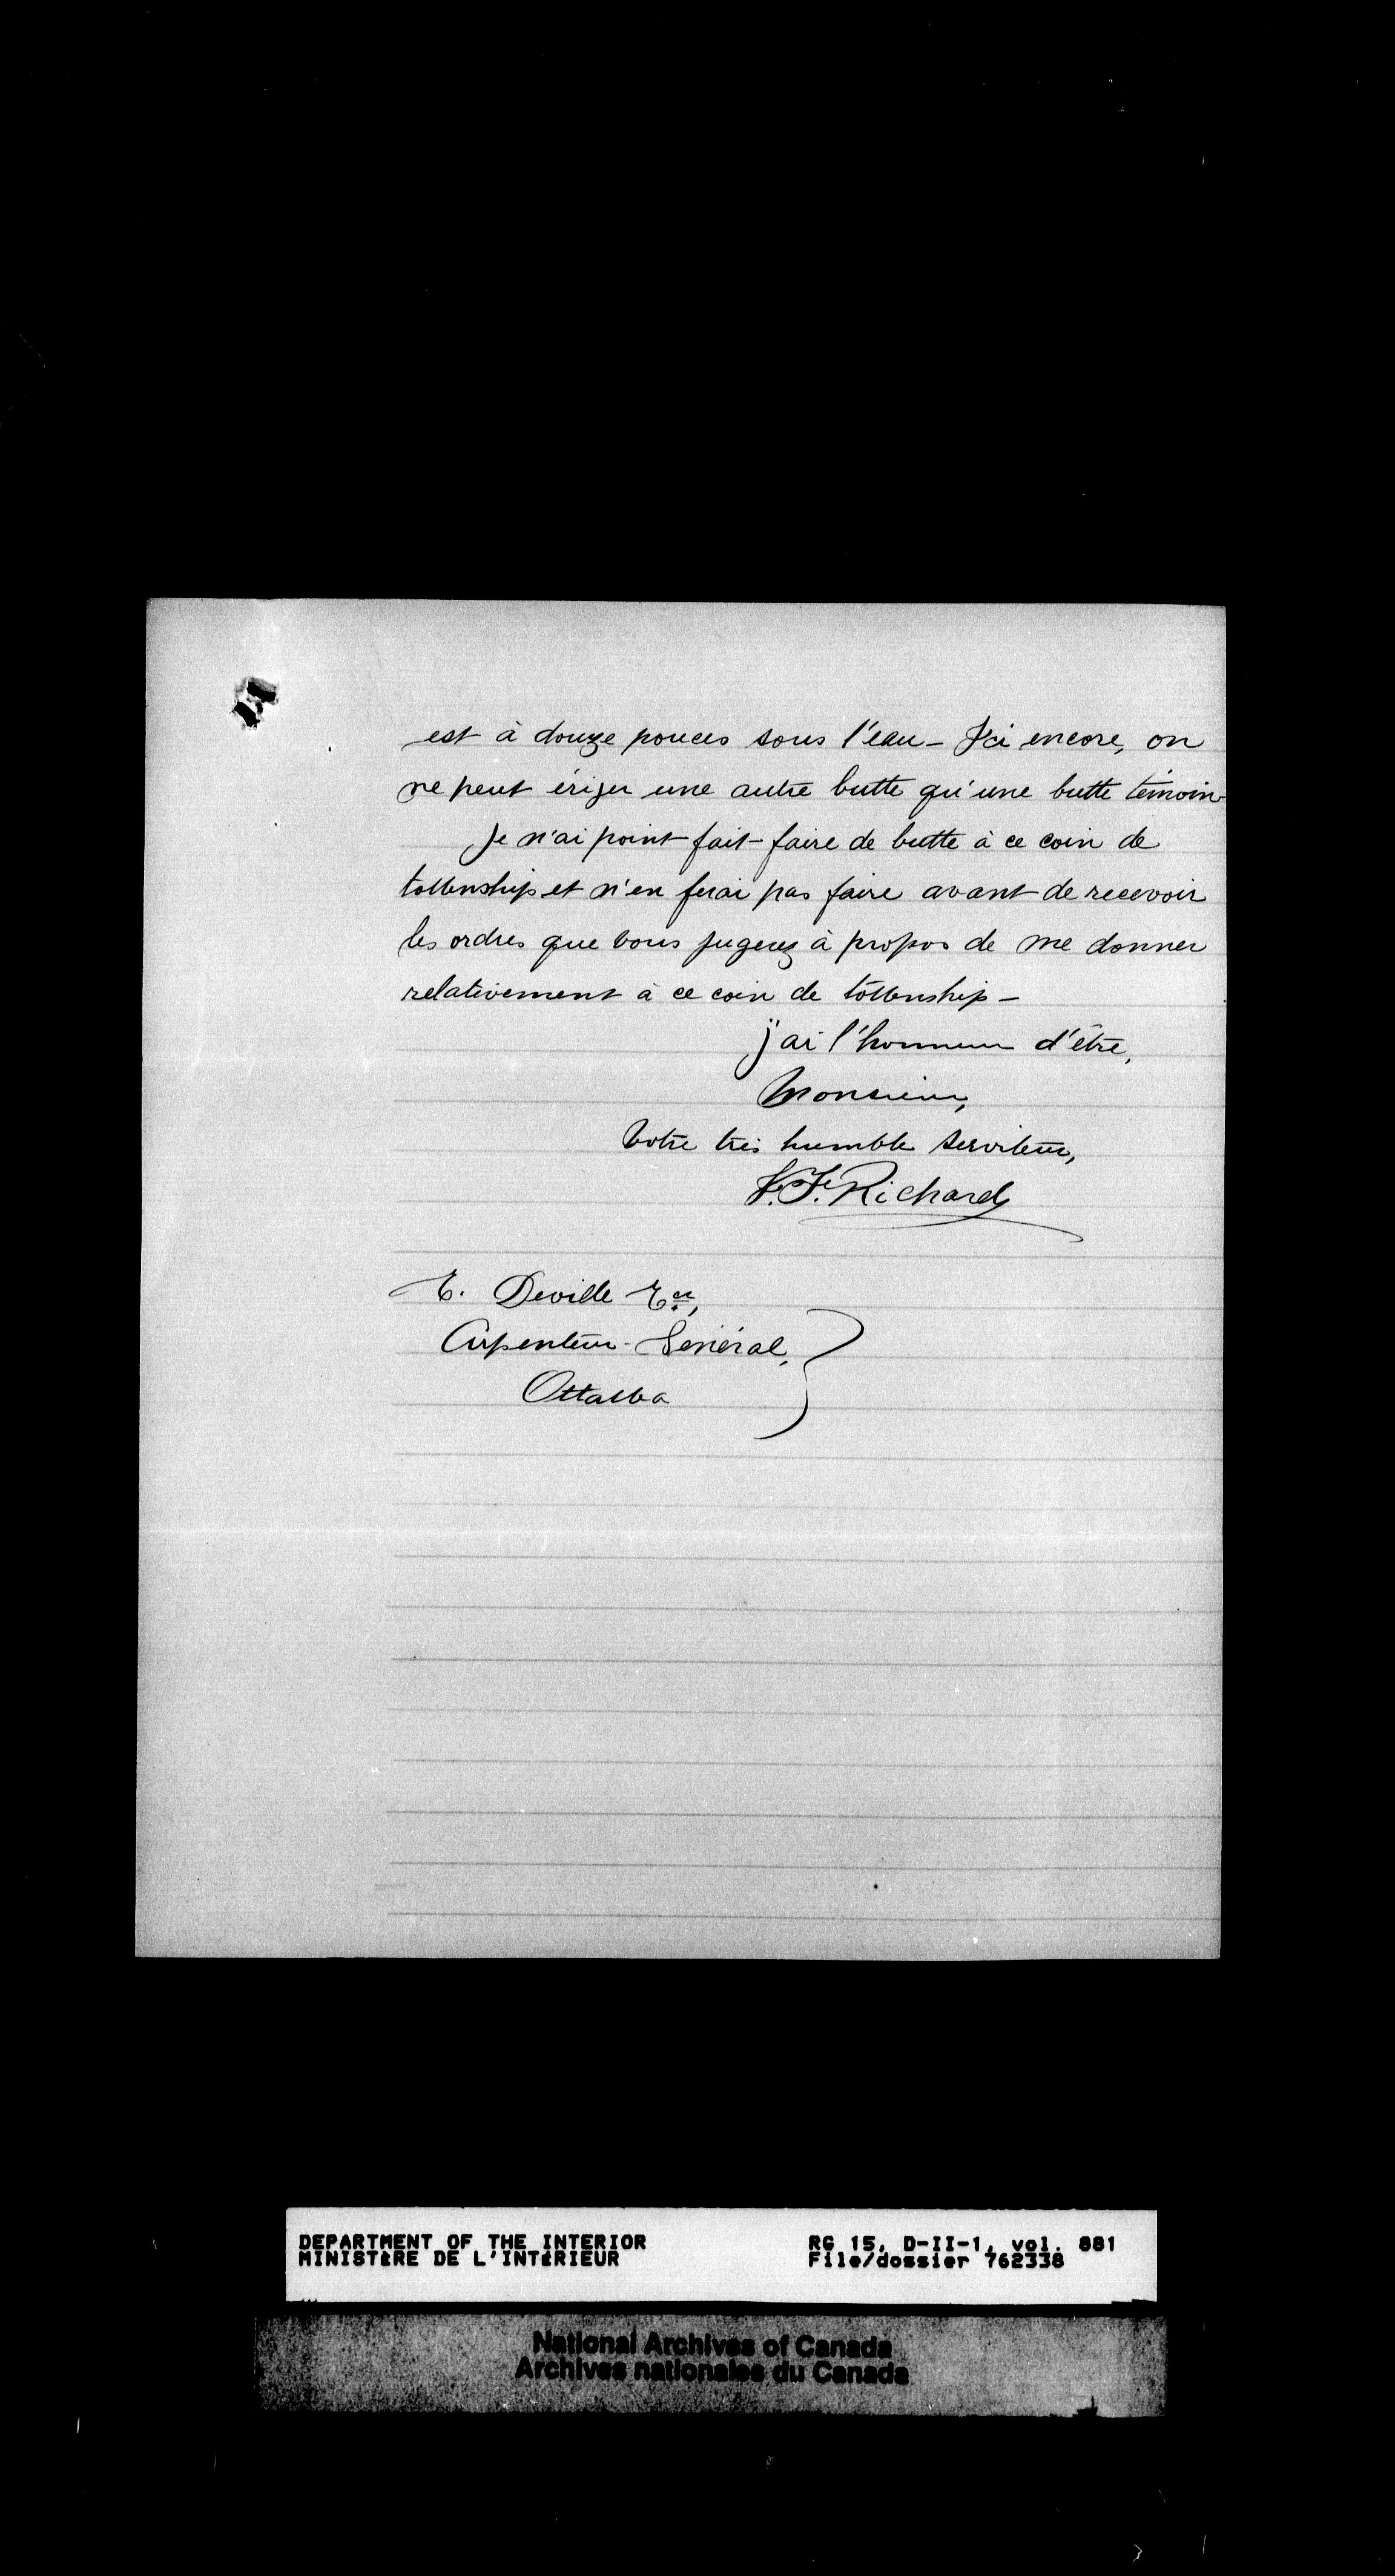 est à douze pouces sous l'eau - Ici encore, on
ne peut ériger une autre butte qu'une butte témoin
Je n'ai point fait faire de butte à ce coin de
township et n'en ferai pas faire avant de recevoir
les ordres que vous jugerez à propos de me donner
relativement à ce coin de township -
j'ai l'honneur d'être,
Monsieur,
Votre très humble serviteur,
J. F. Richard
E. Deville Ecr,
Arpenteur-Général,
Ottawa
DEPARTMENT OF THE INTERIOR
MINISTÈRE DE L'INTÉRIEUR
RG 15, D-II-1, vol. 881
File/dossier 762338
National Archives of Canada
Archives nationales du Canada